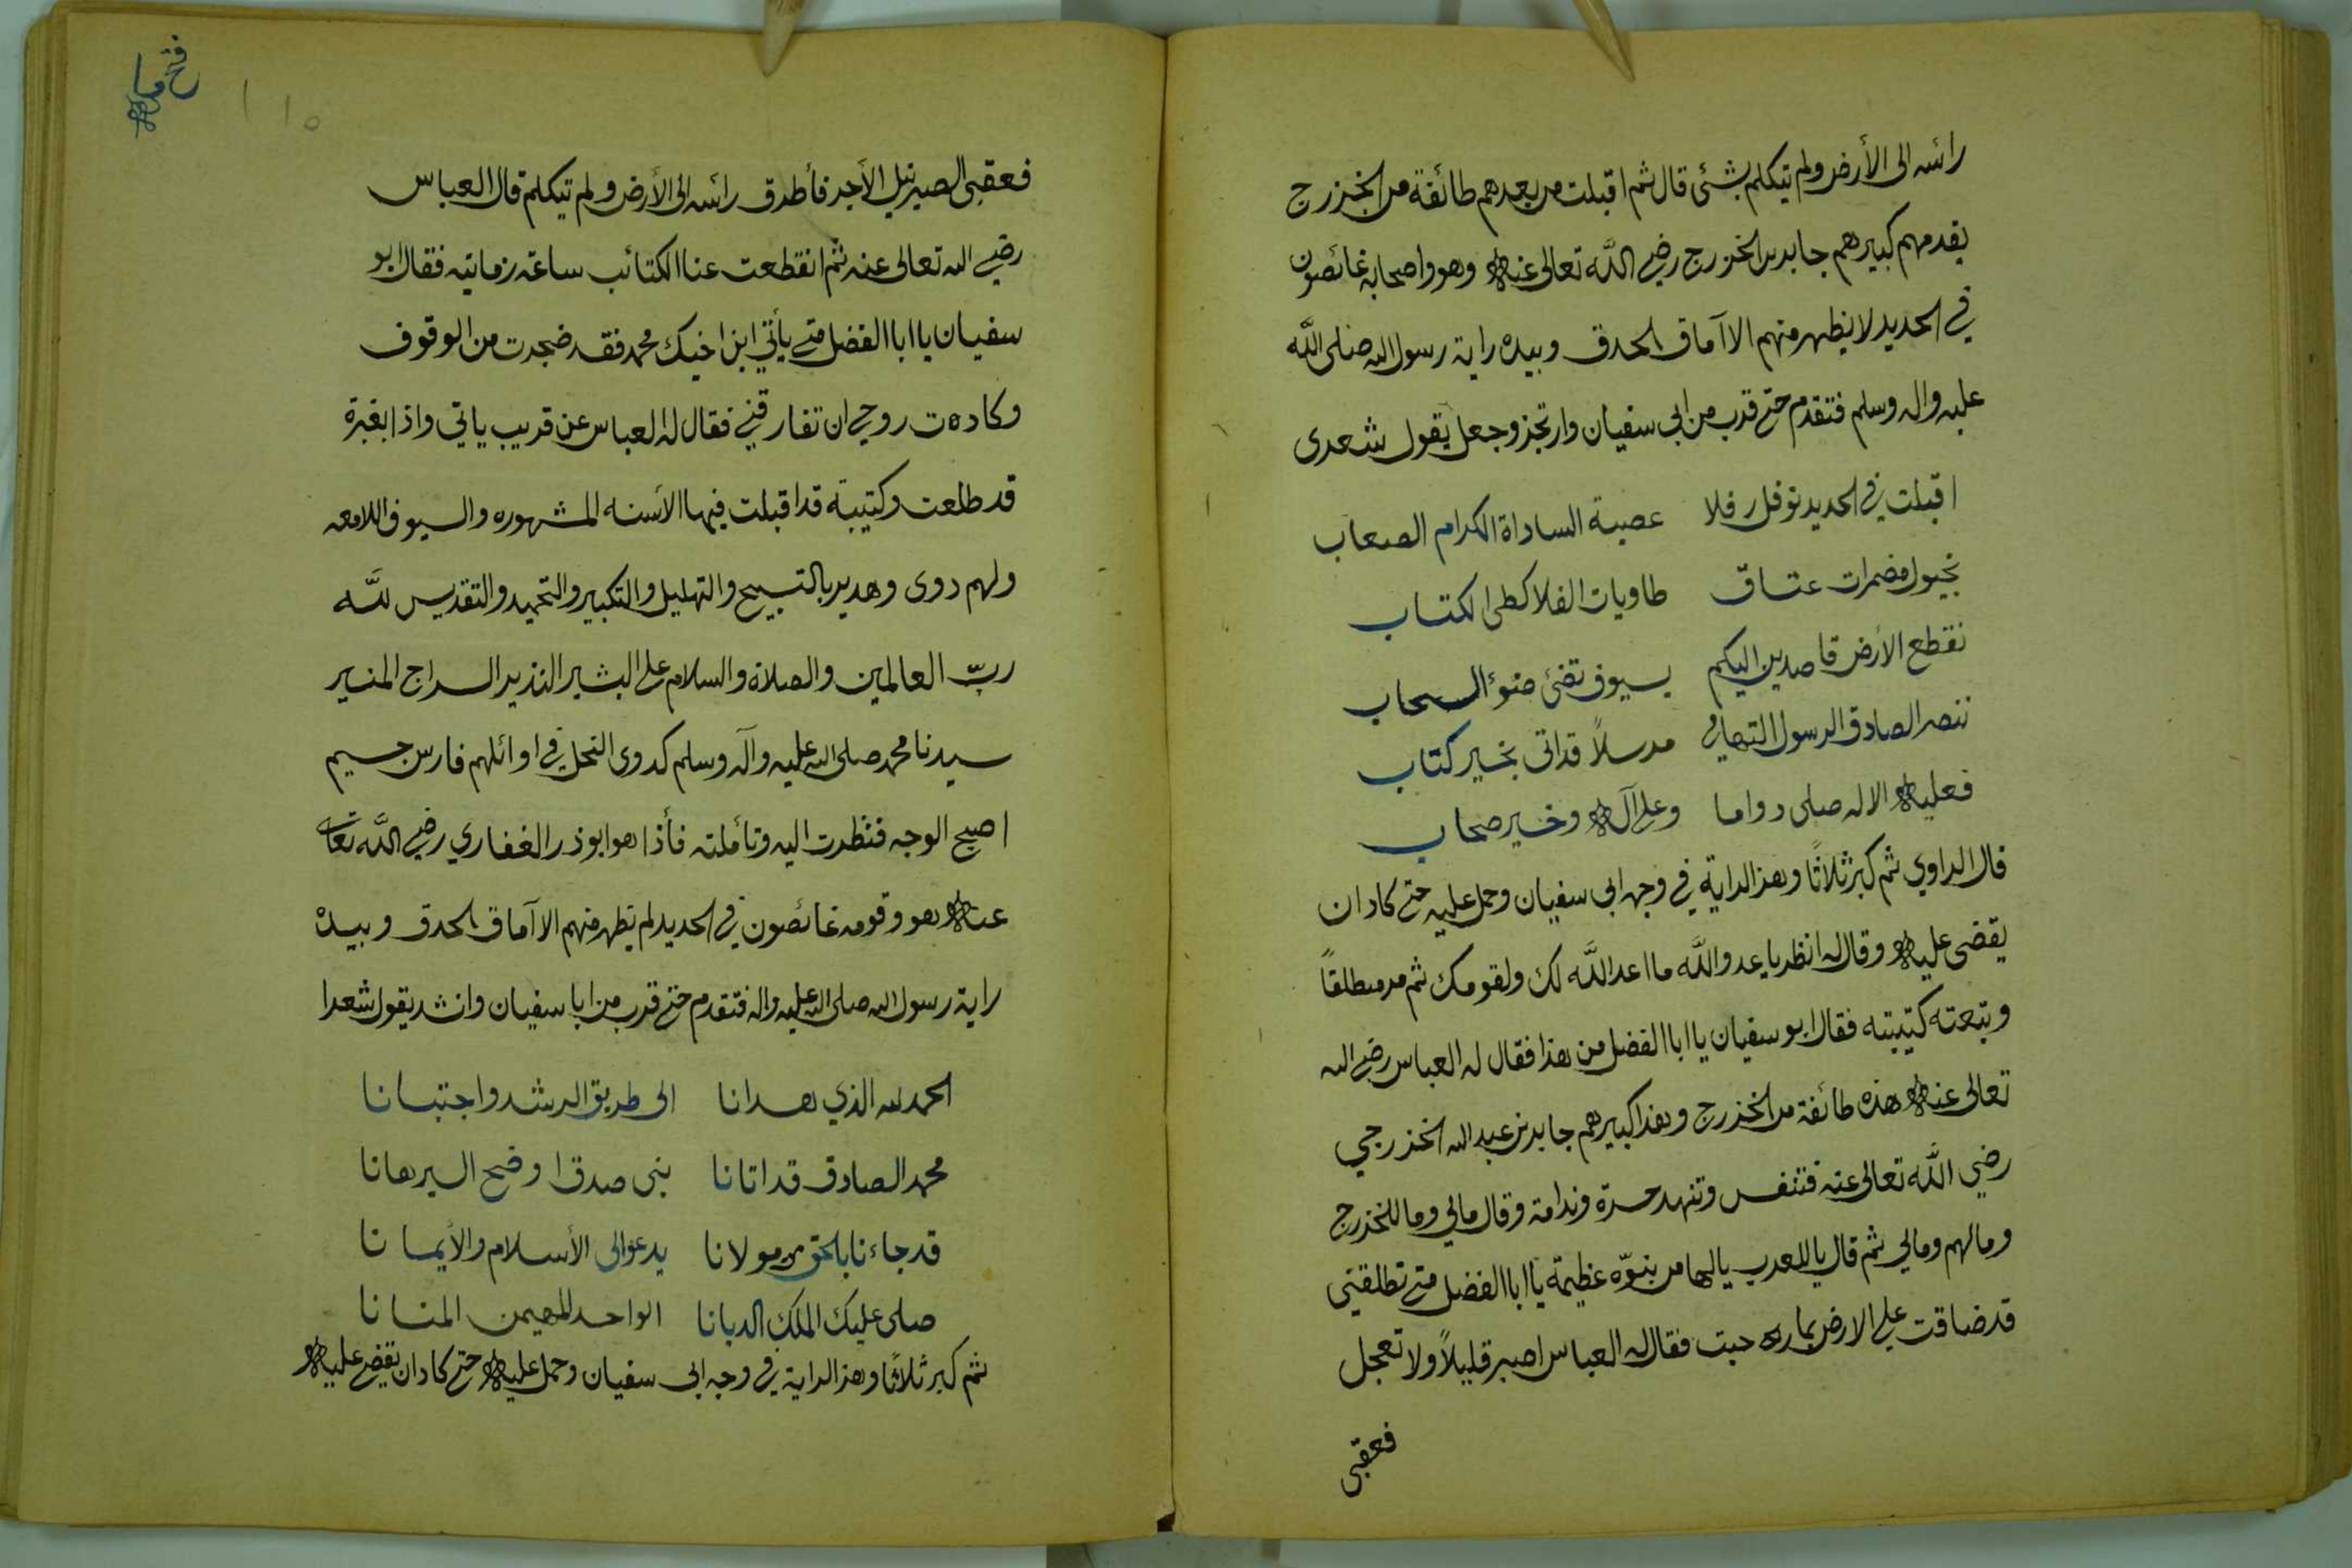 رائسه الى الأرض ولم يتكلم بشئ قال ثم اقبلت من بعدهم طائفة من الخزرج
يقدمهم كبيرهم جابر بن الخزرج رضي اللّه تعالى عنه وهو واصحابه غائصون
في الحديد لا يظهر منهم الا آماق الحدق وبيده راية رسول الله صلى اللّه
عليه واله وسلم فتقدم حتى قرب من ابي سفيان وارتجز وجعل يقول شعرى
اقبلت في الحديد توفل رفلا عصبة الساداة الكرام الصعاب
بخيول مضمرات عتاق طاويات الفلا كطى الكتاب
نقطع الأرض قاصدين اليكم بسيوف تضئ ضوء السحاب
ننصر الصادق الرسول التهامي مرسلاً قد اتى بخير كتاب
فعليه الاله صلى دواما وعلى آله وخير صحاب
قال الراوي ثم كبر ثلاثًا وهز الراية في وجه ابى سفيان وحمل عليه حتى كاد ان
يقضى عليه وقال له انظر يا عدو اللّه ما اعد اللّه لك ولقومك ثم مر مطلقاً
وتبعته كتيبته فقال ابو سفيان يا ابا الفضل من هذا فقال له العباس رضي الله
تعالى عنه هذه طائفة من الخزرج وهذا كبيرهم جابر بن عبد الله الخزرجي
رضي اللّه تعالى عنه فتنفس وتنهد حسرة وندامة وقال مالي وما للخزرج
ومالهم ومالي ثم قال يا للعرب يالها من بنوّه عظيمة يا ابا الفضل متى تطلقني
قد ضاقت علي الارض بما رحبت فقال له العباس اصبر قليلاً ولا تعجل
فعقبى
فتح مكه
١١٥
فعقبى الصبر نيل الأجر فأطرق رائسه الى الأرض ولم يتكلم قال العباس
رضي الله تعالى عنه ثم انقطعت عنا الكتائب ساعة زمانيه فقال ابو
سفيان يا ابا الفضل متى يأتي ابن اخيك محمد فقد ضجرت من الوقوف
وكادت روحي ان تفارقني فقال له العباس عن قريب ياتي واذا بغبرة
قد طلعت وكتيبة قد اقبلت فيها الأسنه المشهوره والسيوف اللامعه
ولهم دوى وهدير بالتسبيح والتهليل والتكبير والتحميد والتقديس للّه
ربّ العالمين والصلاة والسلام على البشير النذير السراج المنير
سيدنا محمد صلى الله عليه وآله وسلم كدوى النحل في اوائلهم فارس جسيم
اصبح الوجه فنظرت اليه وتأملته فأذا هو ابوذر الغفاري رضي اللّه تعالى
عنه هو وقومه غائصون في الحديد لم يظهر منهم الا آماق الحدق وبيده
راية رسول الله صلى الله عليه واله فتقدم حتى قرب من ابا سفيان وانشد يقول شعرا
الحمد لله الذي هدانا الى طريق الرشد واجتبانا
محمد الصادق قد اتانا بنى صدق اوضح البرهانا
قد جاءنا بالحق من مولانا يدعوا الى الأسلام والأيمانا
صلى عليك الملك الديانا الواحد المهيمن المنانا
ثم كبر ثلاثًا وهز الراية في وجه ابى سفيان وحمل عليه حتى كاد ان يقضي عليه